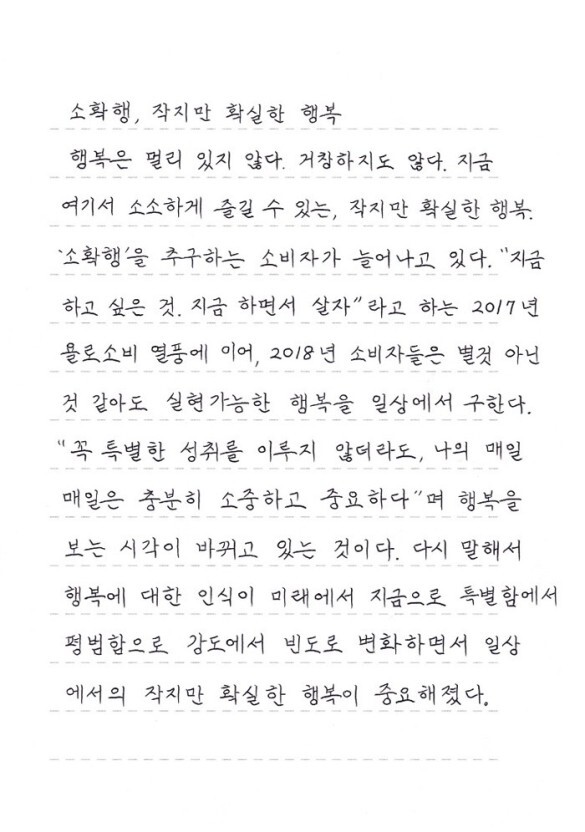 소확행, 작지만 확실한 행복
행복은 멀리 있지 않다. 거창하지도 않다. 지금
여기서 소소하게 즐길 수 있는, 작지만 확실한 행복.
'소확행'을 추구하는 소비자가 늘어나고 있다. "지금
하고 싶은 것. 지금 하면서 살자"라고 하는 2017년
욜로소비 열풍에 이어, 2018년 소비자들은 별것 아닌
것 같아도 실현가능한 행복을 일상에서 구한다.
"꼭 특별한 성취를 이루지 않더라도, 나의 매일
매일은 충분히 소중하고 중요하다"며 행복을
보는 시각이 바뀌고 있는 것이다. 다시 말해서
행복에 대한 인식이 미래에서 지금으로 특별함에서
평범함으로 강도에서 빈도로 변화하면서 일상
에서의 작지만 확실한 행복이 중요해졌다.